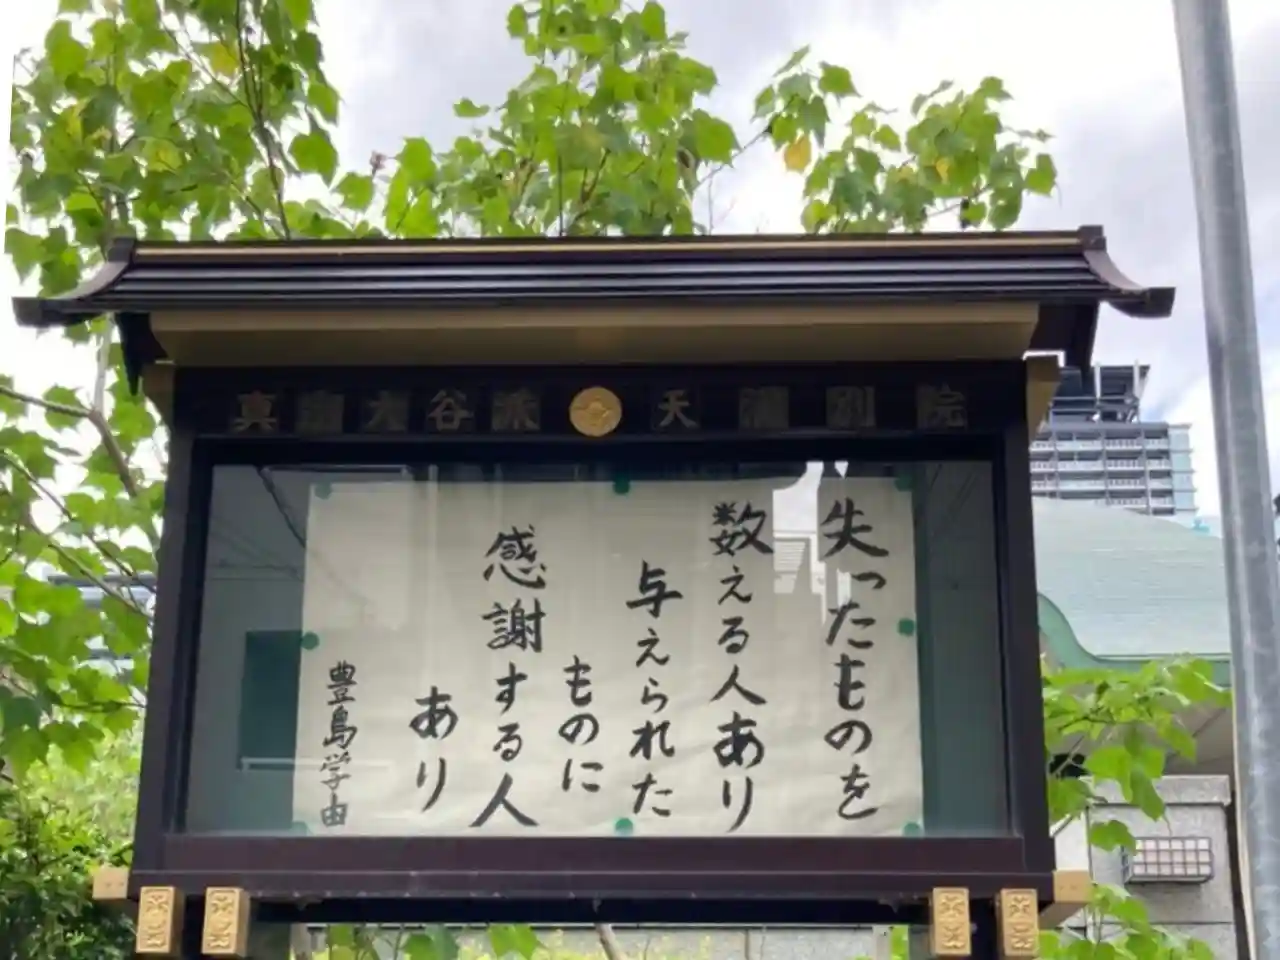 真宗大谷派 天満別院
失ったものを
数える人あり
与えられた
ものに
感謝する人
あり
豊島学由